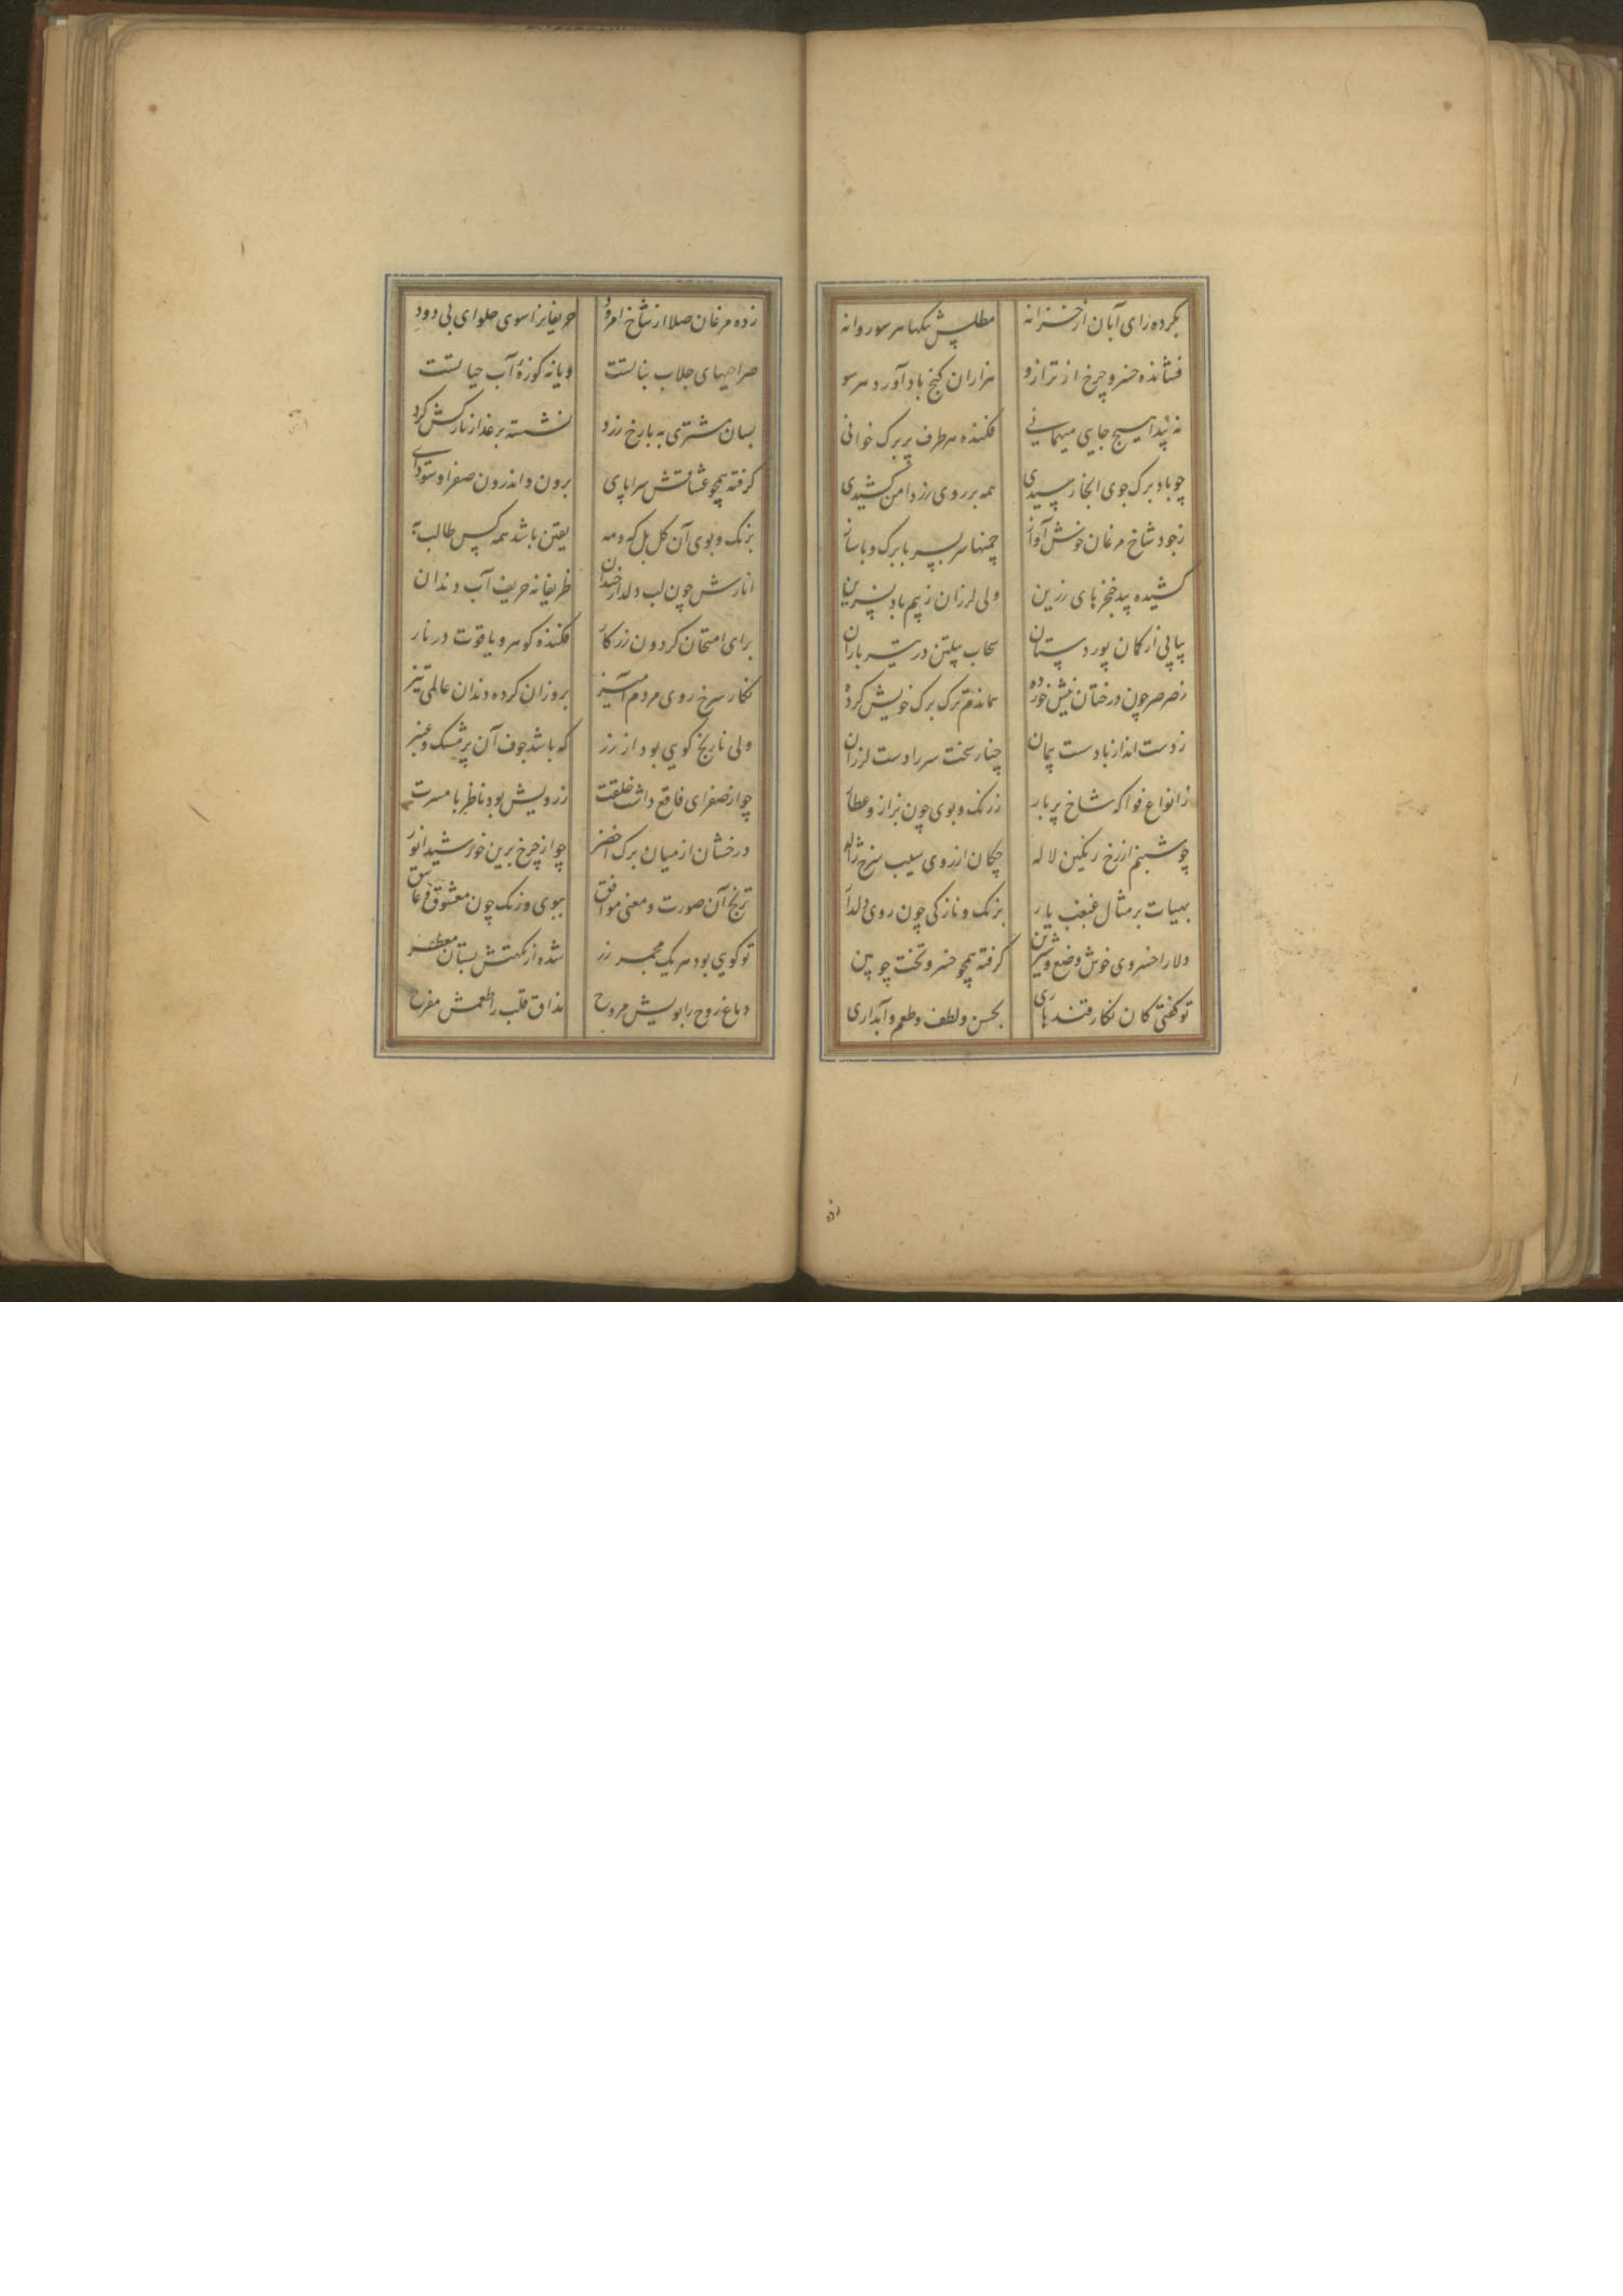 بکرده رای آبان از خزانه مطلس تنکها هر سو روانه
فشانده خسرو چرخ از ترازو هزاران کنج باد آورد هر سو
نه پیدا هیچ جایی میهمانی فکنده هر طرف پر برک خوانی
چو باد برک جوی انجا رسیدی همه بر روی زر دامن کشیدی
ز جود شاخ مرغان خوش آواز چمنها سر بسر با برک و با ساز
کشیده بید خنجرهای زرین ولی لرزان ز بیم باد پسرین
پیاپی از کمان پور دستان سحاب پیلتن در تیر باران
ز صرصر چون درختان نیش خورده بماندم ترک برک خویش کرده
ز دست انداز باد سست پیمان چنار سخت سر را دست لرزان
ز انواع فواکه شاخ پر بار ز رنک و بوی چون بزاز و عطار
چو شبنم از رخ رنکین لاله چکان از روی سیب سرخ ژاله
بهیات بر مثال غبغب یار برنک و نازکی چون روی دلدار
دلارا خسروی خوش وضع و شیرین کرفته همچو خسرو تخت چوبین
تو کفتی کان نکار قندهاری بحسن ولطف وطعم و آبداری
زده
زده مرغان صلا از شاخ امرود حریفانرا سوی حلوای بی دود
صراحیهای جلاب بناتست و یا نه کوزهٔ آب حیاتست
بسان مشتری به با رخ زرد نشسته بر عذار نازکش کرد
کرفته همچو عشاقش سراپای برون و اندرون صفرا و سودای
برنک و بوی آن کل بل که و مه یقین باشد همه کس طالب به
انارش چون لب دلدار خندان ظریفانه حریف آب دندان
برای امتحان کردون زرکار فکنده کوهر و یاقوت در نار
نکار سرخ روی مردم آمیز بروزان کرده دندان عالمی تیز
ولی نارنج کویی بود از زر که باشد جوف آن پر مشک و عنبر
چو از صفرای فاقع داشت خلقت ز رویش بود ناظر با مسرت
درخشان از میان برک اخضر چو از چرخ برین خورشید انور
ترنج آن صورت و معنی موافق ببوی و رنک چون معشوق و عاشق
تو کویی بود هر یک مجمر زر شده از نکهتش بستان معطر
دماغ روح را بویش مروح مذاق قلب را طعمش مفرح